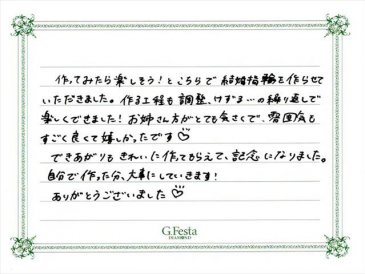 作ってみたら楽しそう!とこちらで結婚指輪を作らせて
いただきました。作る工程も調整、けずる…の繰り返しで
楽しくできました!お姉さん方がとても気さくで、雰囲気も
すごく良くて嬉しかったです♡
できあがりもきれいに作ってもらえて、記念になりました。
自分で作った分、大事にしていきます!
ありがとうございました♡
G.Festa
DIAMOND